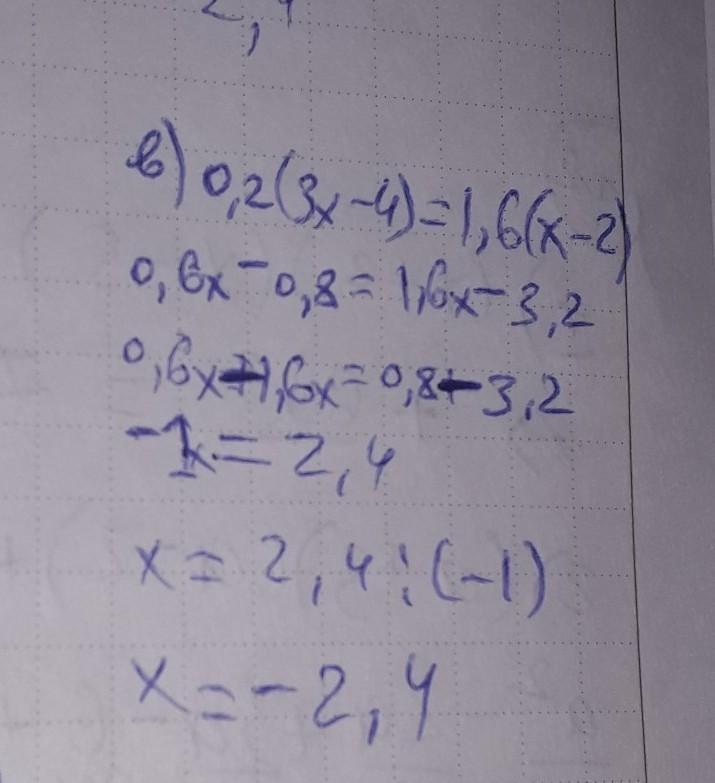 в) 0,2(3x-4)=1,6(x-2)
0,6x-0,8=1,6x-3,2
0,6x-1,6x=0,8-3,2
-1x=2,4
x=2,4:(-1)
x=-2,4